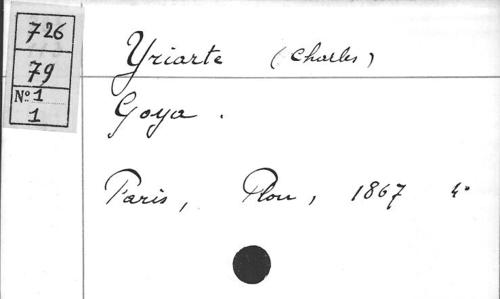 726
79
Nº 1
1
Yriarte (Charles)
Goya.
Paris, Plon, 1867 4º